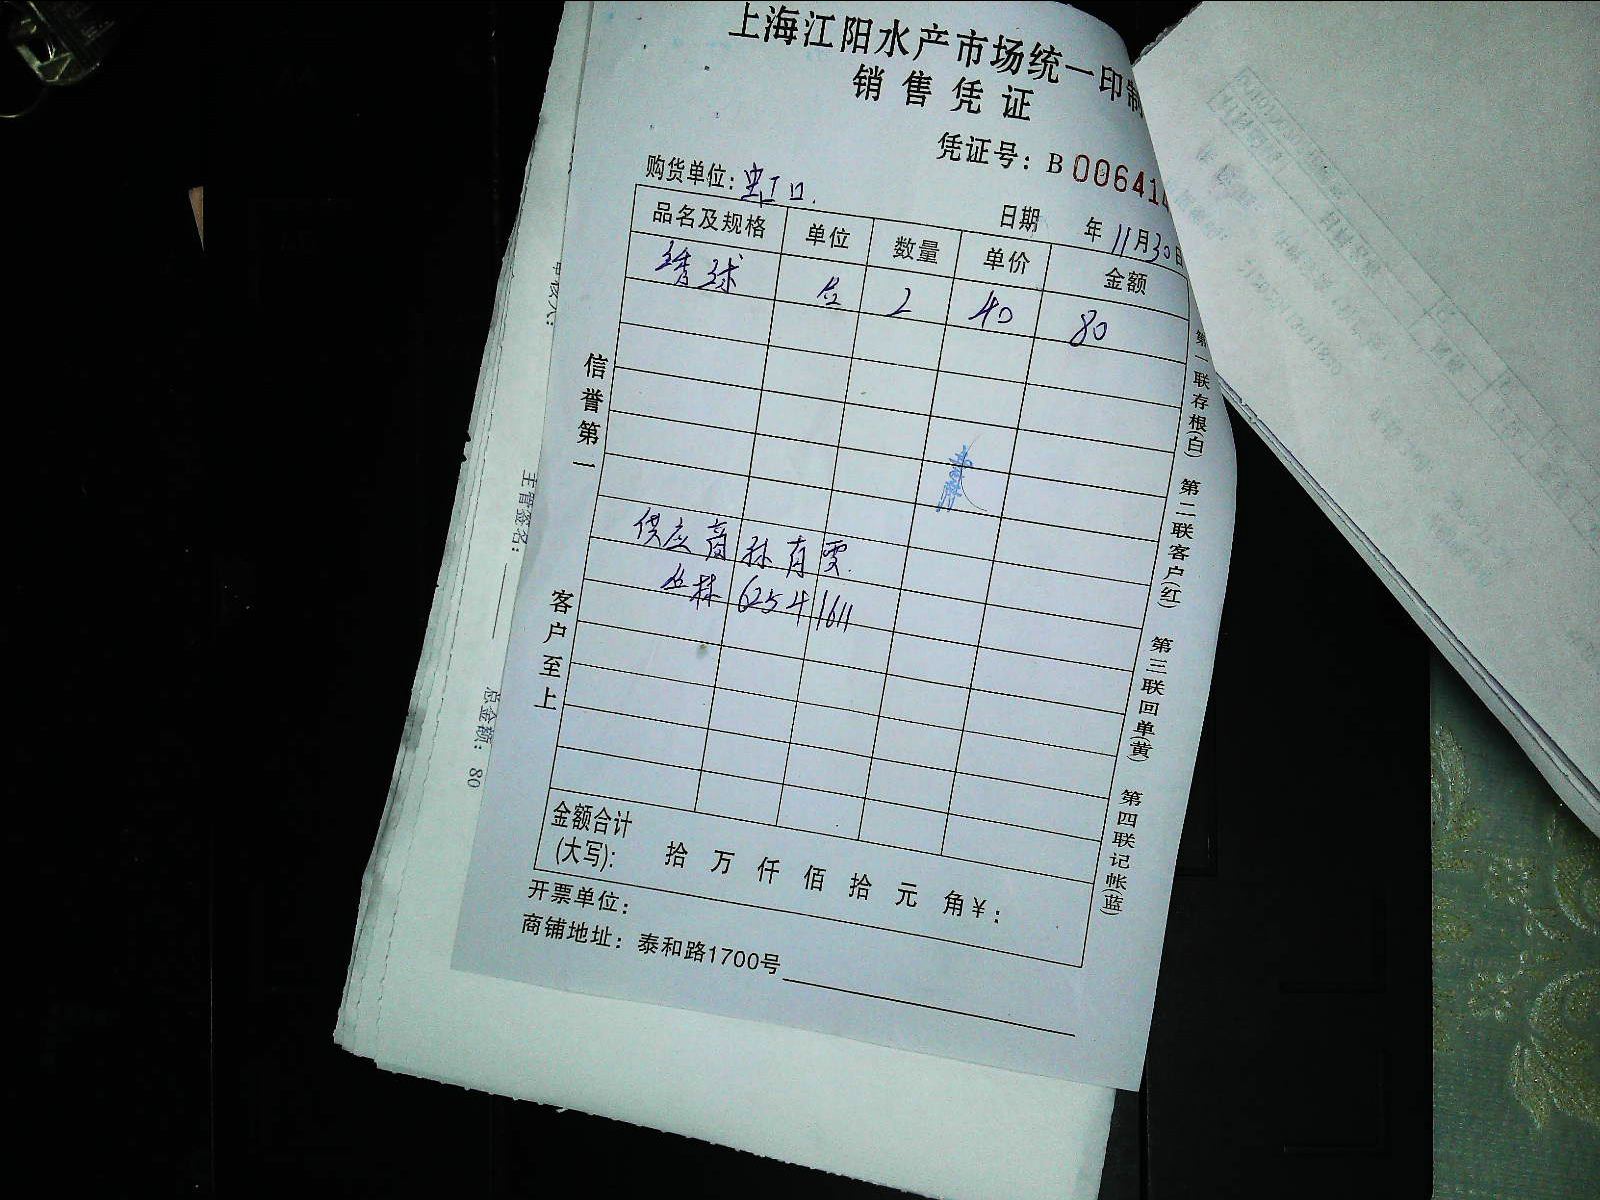 上海江阳水产市场统一印制
销售凭证
凭证号：B 00641
购货单位：虹口.
日期 年 11月30日
品名及规格 单位 数量 单价 金额
球 2 40 80
信誉第一
客户至上
供应商 孙育雯.
丛林 62541611
金额合计
(大写)： 拾 万 仟 佰 拾 元 角 ¥：
开票单位：
商铺地址：泰和路1700号
第一联存根(白) 第二联客户(红) 第三联回单(黄) 第四联记帐(蓝)
主管签名：
总金额： 80